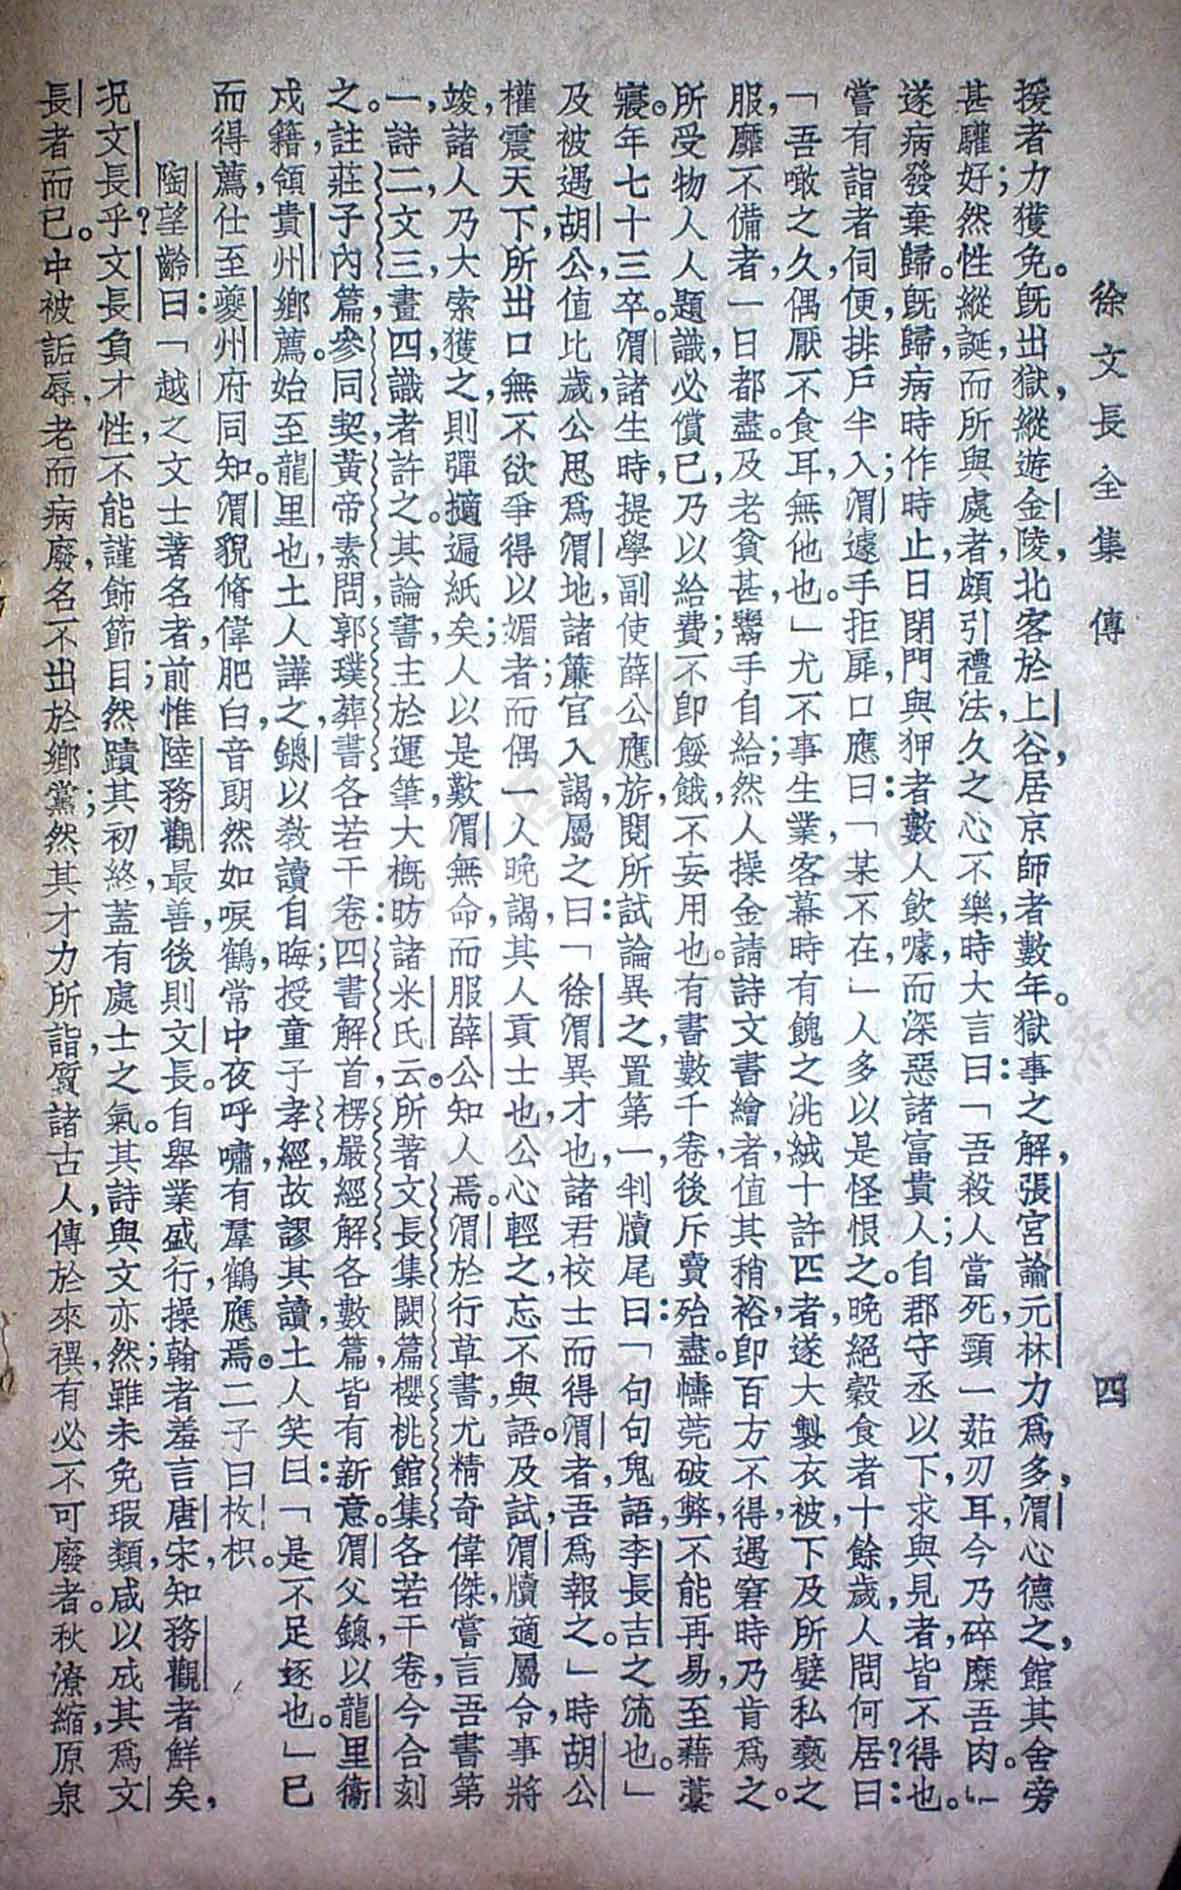 徐文長全集 傳 四
援者力獲免。旣出獄，縱遊金陵，北客於上谷，居京師者數年。獄事之解，張宮諭元忭力爲多，渭心德之，館其舍旁
甚驩好；然性縱誕，而所與處者頗引禮法，久之，心不樂，時大言曰：「吾殺人當死，頸一茹刃耳，今乃碎糜吾肉。」
遂病發棄歸。旣歸，病時作時止，日閉門與狎者數人飲噱，而深惡諸富貴人；自郡守丞以下，求與見者，皆不得也。
嘗有詣者伺便排戶半入；渭遽手拒扉，口應曰：「某不在」人多以是怪恨之。晚絕穀食者十餘歲，人問何居？曰：
「吾噉之久，偶厭不食耳，無他也。」尤不事生業，客幕時，有餽之洮絨十許匹者，遂大製衣被，下及所嬖私褻之
服，靡不備者，一日都盡。及老貧甚，鬻手自給；然人操金請詩文書繪者，值其稍裕，卽百方不得，遇窘時乃肯爲之。
所受物人人題識，必償已，乃以給費；不卽餒餓，不妄用也。有書數千卷，後斥賣殆盡。幬莞破弊，不能再易，至藉藁
寢。年七十三卒。渭諸生時，提學副使薛公應旂，閱所試論，異之，置第一，判牘尾曰：「句句鬼語，李長吉之流也。」
及被遇胡公，值比歲，公思爲渭地，諸簾官入謁，屬之曰：「徐渭異才也，諸君校士而得渭者，吾爲報之。」時胡公
權震天下，所出口無不欲爭得以媚者；而偶一人晚謁，其人貢士也，公心輕之，忘不與語。及試，渭牘適屬令，事將
竣，諸人乃大索獲之，則彈擿遍紙矣；人以是歎渭無命，而服薛公知人焉。渭於行草書，尤精奇偉傑，嘗言吾書第
一，詩二，文三，畫四，識者許之。其論書主於運筆，大概昉諸米氏云。所著文長集闕篇櫻桃館集各若干卷，今合刻
之。註莊子內篇，參同契，黃帝素問，郭璞葬書各若干卷；四書解首，楞嚴經解各數篇，皆有新意。渭父鏓，以龍里衞
戍籍，領貴州鄉薦。始至龍里也，土人譁之，鏓以敎讀自晦，授童子孝經，故謬其讀，土人笑曰：「是不足逐也。」已
而得薦，仕至：夔州府同知。渭貌脩偉肥白，音朗然如唳鶴，常中夜呼嘯，有羣鶴應焉。二子曰枚，枳。
陶望齡曰：「越之文士著名者；前惟陸務觀最善，後則文長。自舉業盛行，操翰者羞言唐宋，知務觀者鮮矣，
況文長乎？文長負才，性不能謹飾節目；然蹟其初終，蓋有處士之氣。其詩與文亦然；雖未免瑕類，咸以成其爲文
長者而已。中被詬辱，老而病廢，名不出於鄉黨；然其才力所詣，質諸古人，傳於來禩，有必不可廢者。秋潦縮，原泉